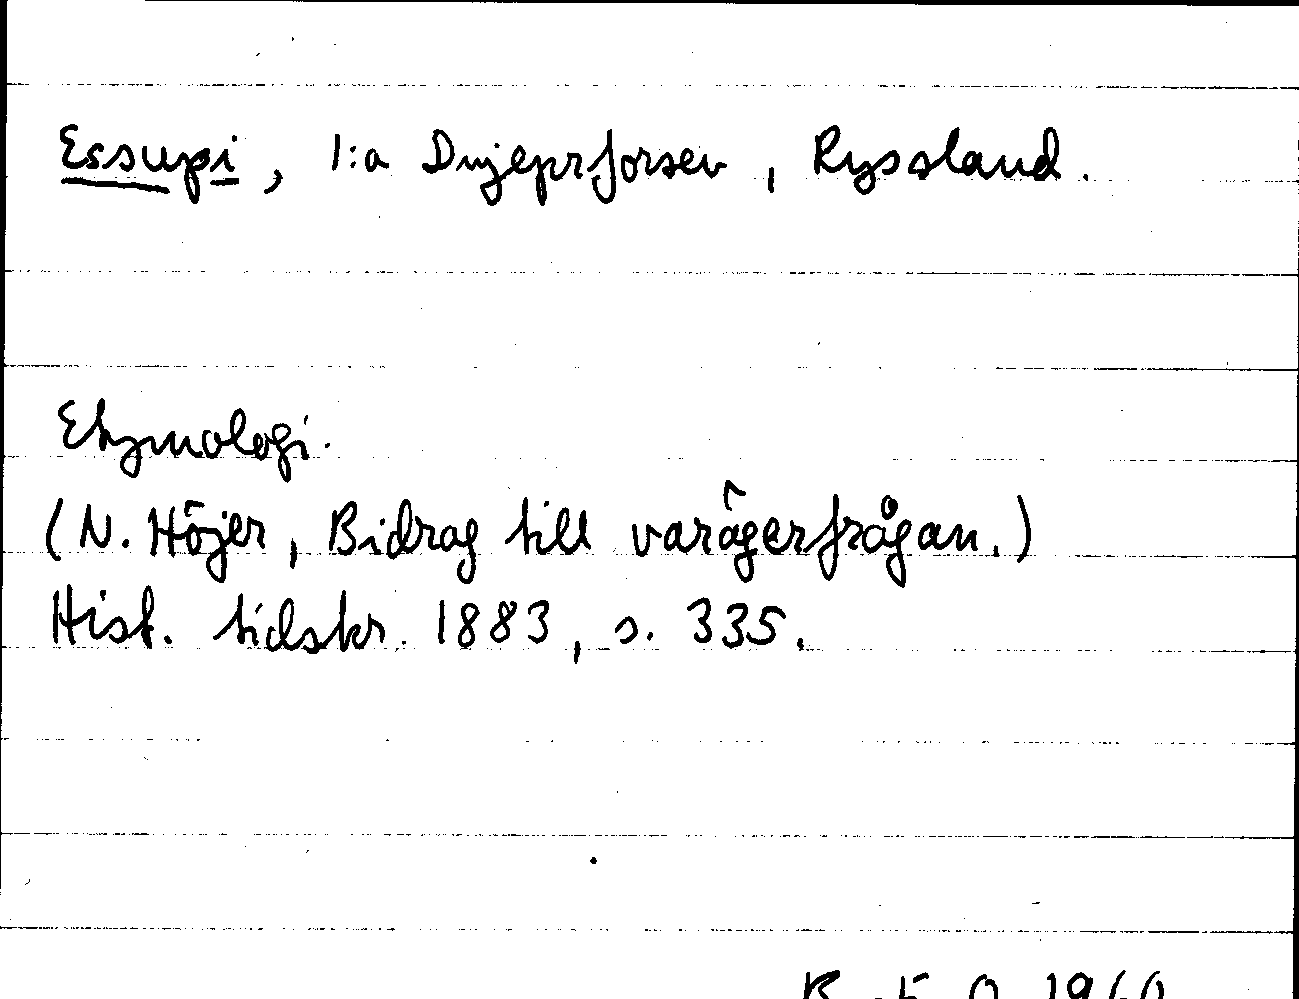 Essupi, 1:a Dnjeprforsen, Ryssland.
Etymologi.
(N. Höjer, Bidrag till varägerfrågan.)
Hist. tidskr. 1883, s. 335.